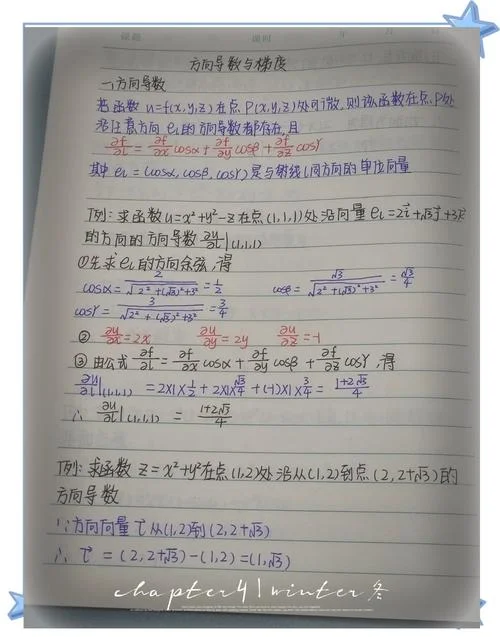 课题 课时 年 月 日
方向导数与梯度
一、方向导数
若函数 u=f(x,y,z)在点 P(x,y,z)处可微,则该函数在点P处
沿任意方向 eₗ的方向导数都存在,且
∂f/∂l = ∂f/∂x cosα + ∂f/∂y cosβ + ∂f/∂z cosγ
其中 eₗ = (cosα, cosβ, cosγ) 是与射线 l 同方向的单位向量
例: 求函数 u=x²+y²-z 在点(1,1,1)处沿向量 eₗ=2i⃗+√3j⃗+3k⃗
的方向的方向导数 ∂u/∂l|(1,1,1)
①先求 eₗ的方向余弦,得
cosα = 2/√(2²+(√3)²+3²) = 1/2 cosβ = √3/√(2²+(√3)²+3²) = √3/4
cosγ = 3/√(2²+(√3)²+3²) = 3/4
② ∂u/∂x=2x ∂u/∂y=2y ∂u/∂z=-1
③ 由公式 ∂f/∂l = ∂f/∂x cosα + ∂f/∂y cosβ + ∂f/∂z cosγ,得
∂u/∂l|(1,1,1) = 2×1×1/2 + 2×1×√3/4 + (-1)×1×3/4 = (1+2√3)/4
∴ ∂u/∂l|(1,1,1) = (1+2√3)/4
例: 求函数 z=x²+y²在点(1,2)处沿从(1,2)到点(2,2+√3)的
方向导数
∵方向向量 l⃗ 从(1,2)到(2,2+√3)
∴ l⃗ = (2,2+√3)-(1,2)=(1,√3)
chapter4|winter冬